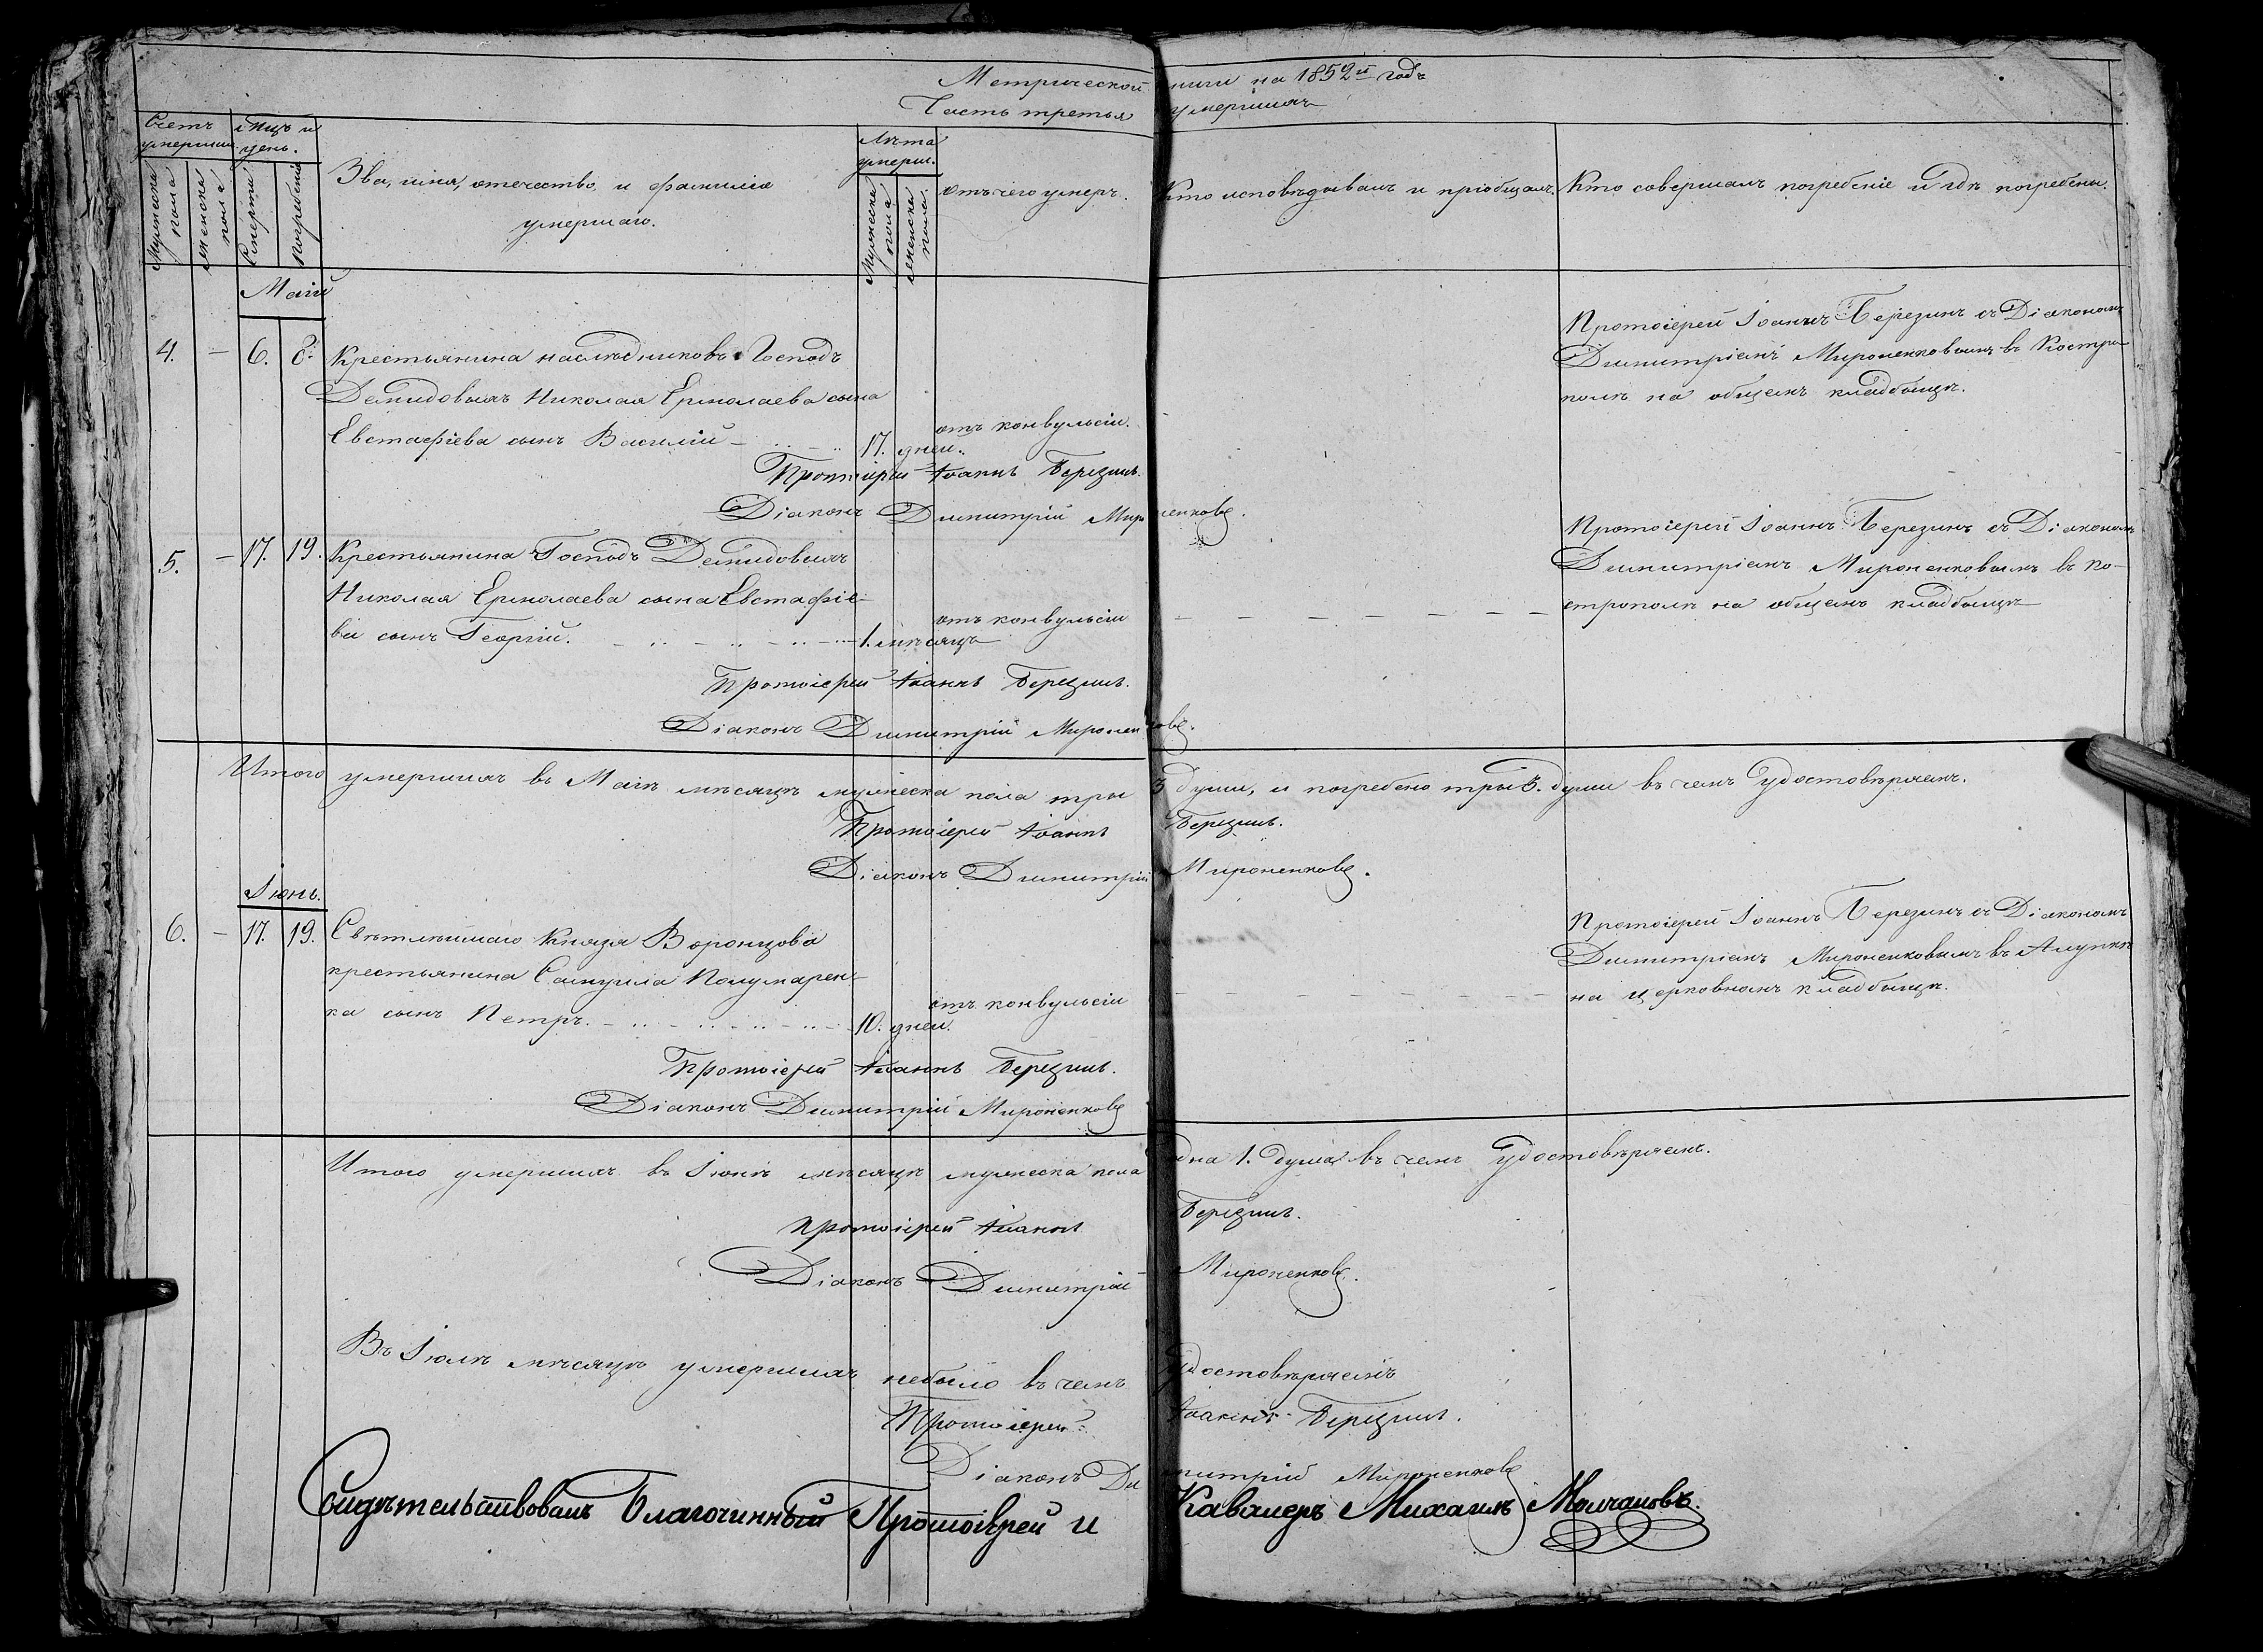 Метрической книги на 1852й годъ
Часть третья умершихъ
Счетъ умершихъ.
Мѣсяцъ и день.
Мужеска пола
женска пола
Смерти
погребенія
Зва, имя, отечество, и фамилія
умершаго.
Лѣта умерш.
Мужеска пола
женска пола.
отъ чего умеръ.
Кто исповѣдывалъ и пріобщалъ.
Кто совершалъ погребеніе и гдѣ погребены.
Маій
4. — 6. 8. Крестьянина наслѣдниковъ Господъ
Демидовыхъ Николая Ермолаева сына
Евстафіева сынъ Василій 17. дней.
отъ конвульсіи.
Протоіерей Іоаннъ Березинъ съ Діакономъ
Димитріемъ Мироненковымъ въ Костро-
полѣ на общемъ кладбищѣ.
Протоіерей Іоаннъ Березинъ.
Діаконъ Димитрій Мироненковъ.
5. — 17. 19. Крестьянина Господъ Демидовыхъ
Николая Ермолаева сына Евстафіе-
ва сынъ Георгій. 1. мѣсяцъ
отъ конвульсіи
Протоіерей Іоаннъ Березинъ съ Діакономъ
Димитріемъ Мироненковымъ въ Ко-
строполѣ на общемъ кладбищѣ
Протоіерей Іоаннъ Березинъ.
Діаконъ Димитрій Мироненковъ.
Итого умершихъ въ Маіѣ мѣсяцѣ мужеска пола три 3 души, и погребено три 3. души въ чемъ удостовѣряемъ.
Протоіерей Іоаннъ Березинъ.
Діаконъ Димитрій Мироненковъ.
Іюнь.
6. — 17. 19. Свѣтлѣйшаго Князя Воронцова
крестьянина Самуила Полумарен-
ка сынъ Петръ. 10. дней.
отъ конвульсіи
Протоіерей Іоаннъ Березинъ съ Діакономъ
Димитріемъ Мироненковымъ въ Алупкѣ
на церковномъ кладбищѣ.
Протоіерей Іоаннъ Березинъ.
Діаконъ Димитрій Мироненковъ
Итого умершихъ въ Іюнѣ мѣсяцѣ мужеска пола одна 1. душа въ чемъ удостовѣряемъ.
Протоіерей Іоаннъ Березинъ.
Діаконъ Димитрій Мироненковъ.
Въ Іюлѣ мѣсяцѣ умершихъ небыло въ чемъ удостовѣряемъ
Протоіерей Іоаннъ Березинъ.
Діаконъ Димитрій Мироненковъ
Свидѣтельствовалъ Благочинный Протоіерей и Кавалеръ Михаилъ Молчановъ.